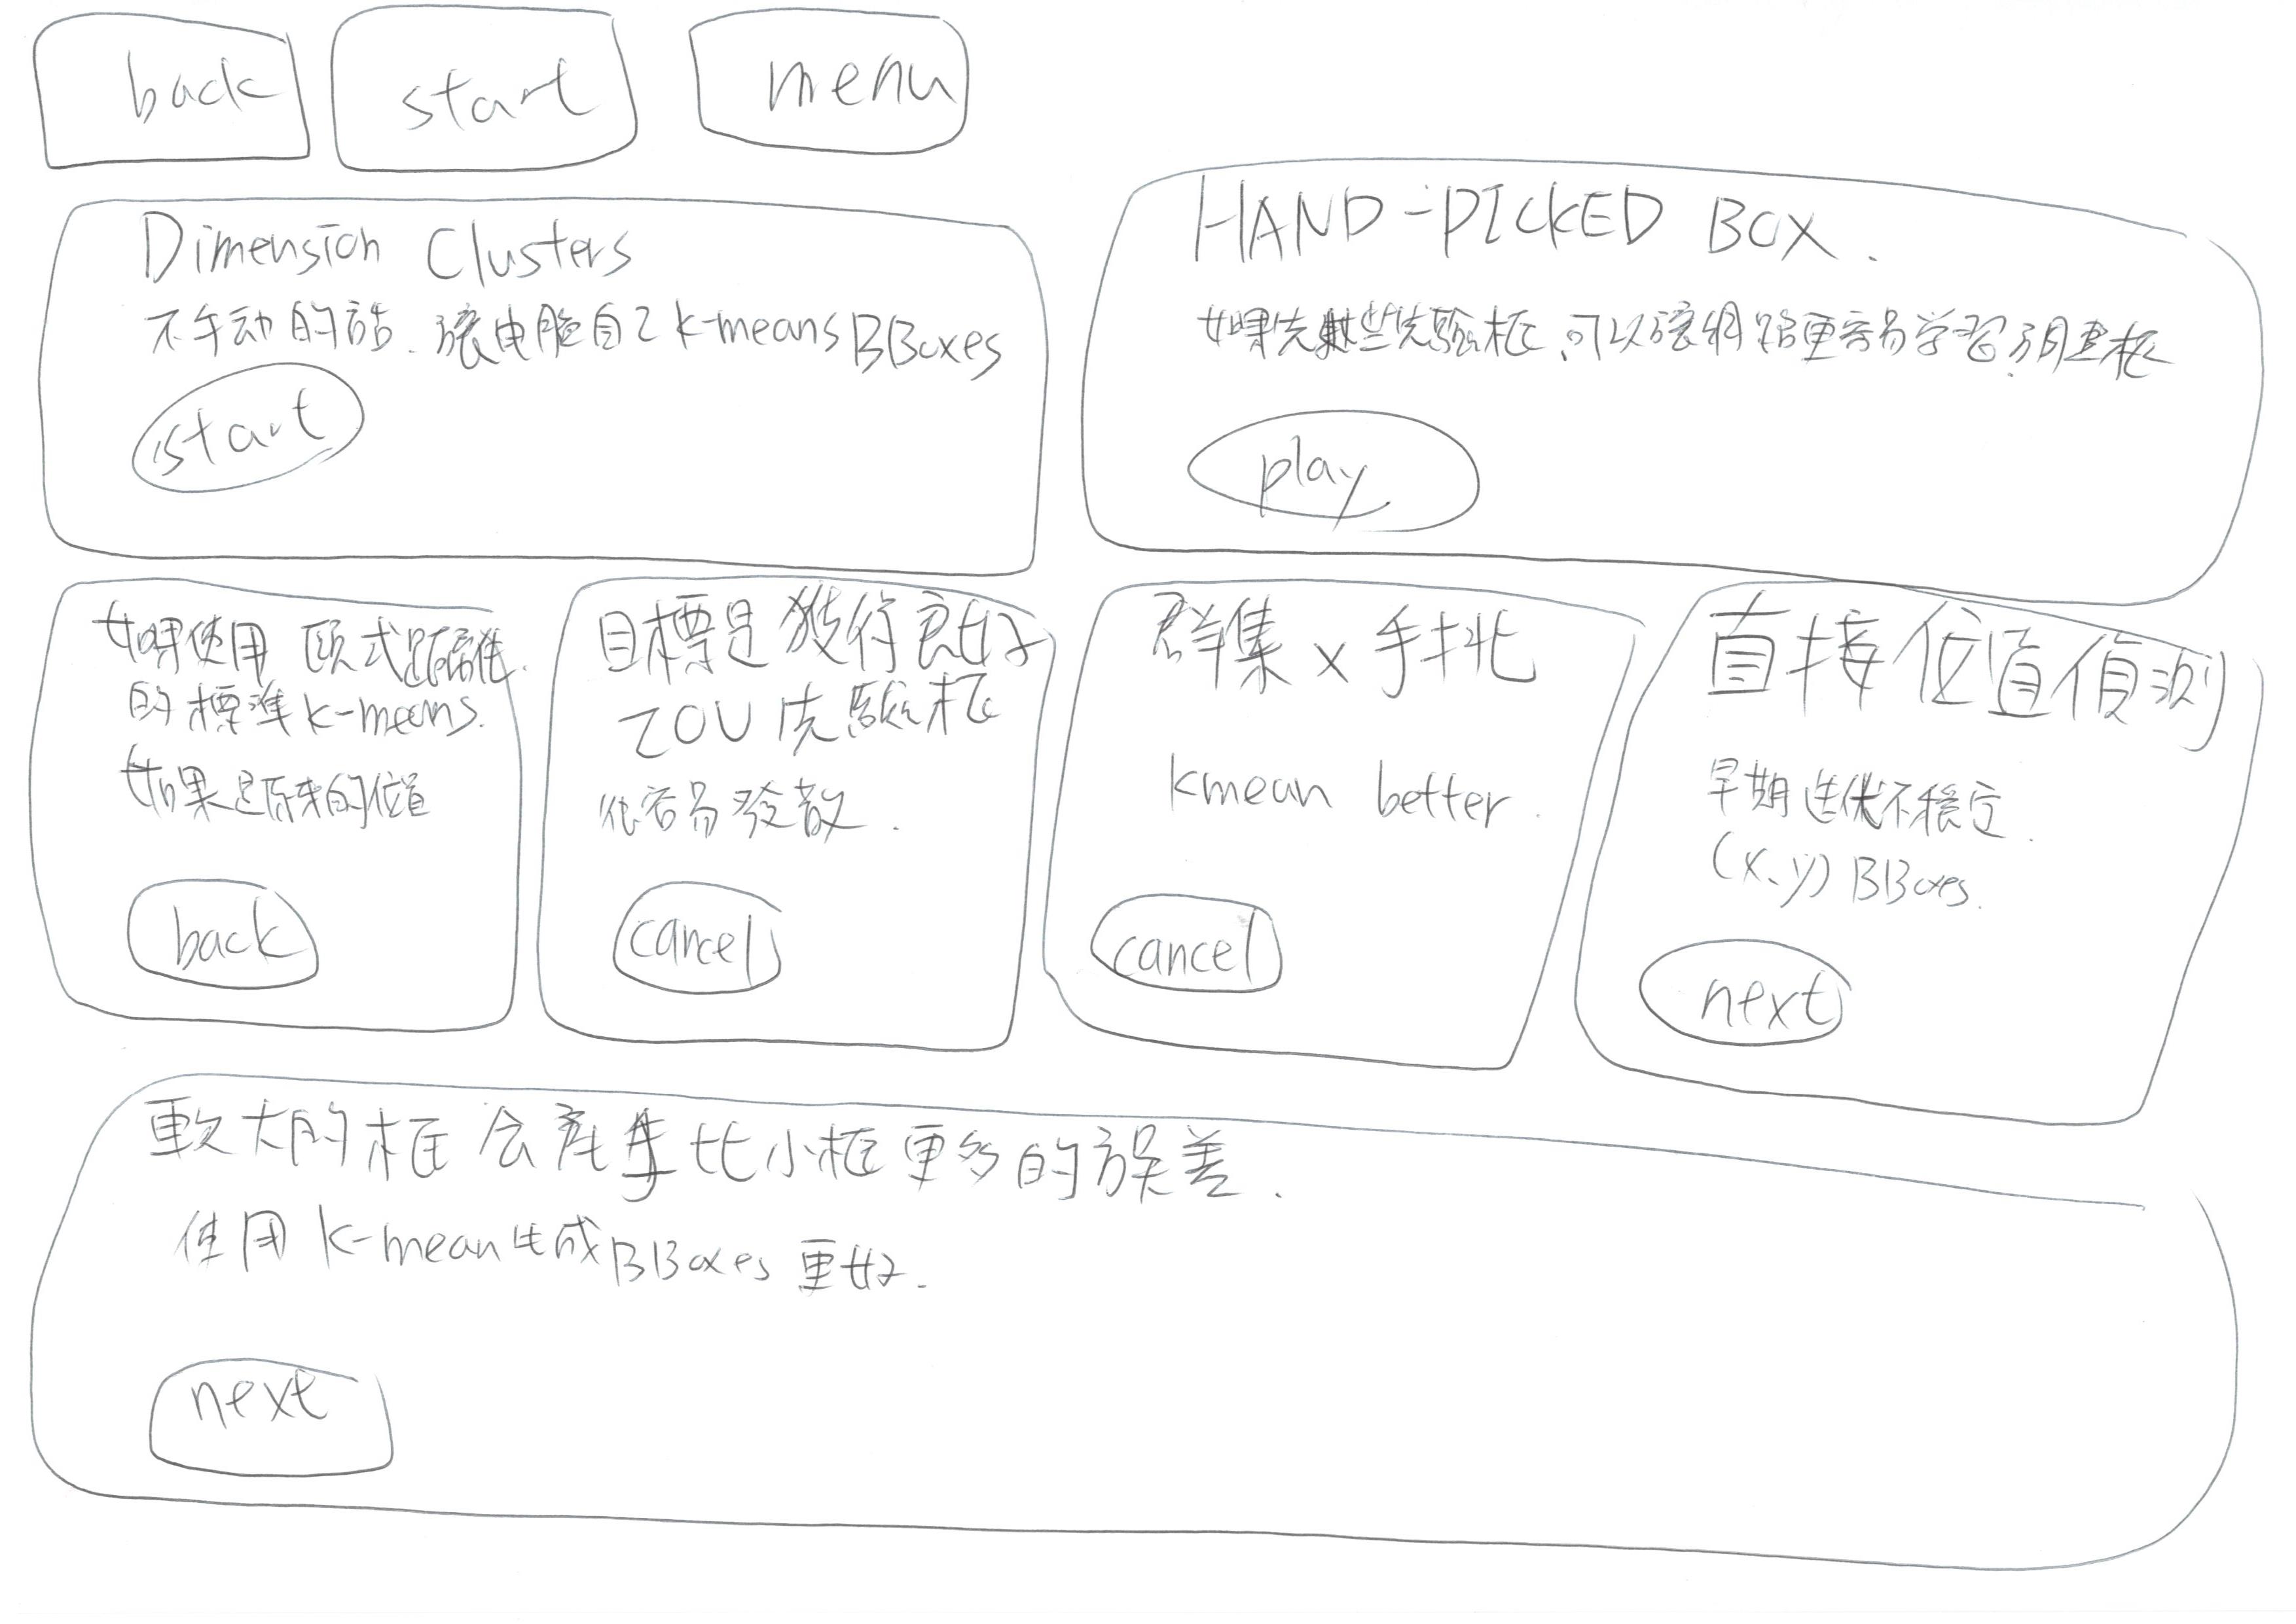 back
start
menu
Dimension Clusters
不手动的話、讓电脑自己k-means BBoxes
start
HAND-PICKED BOX.
如果先 些先驗框、可以讓網路更容易学習
play
如果使用 欧式距離
的標準k-means.
如果是原來的位置
back
目標是獲得良好
IOU先驗框
很容易發散.
cancel
群集 x 手挑
kmean better.
cancel
直接位置偵測
早期迭代不穩定.
(x、y) BBoxes.
next
較大的框会產生比小框更多的誤差.
使用 k-mean生成BBoxes 更好.
next